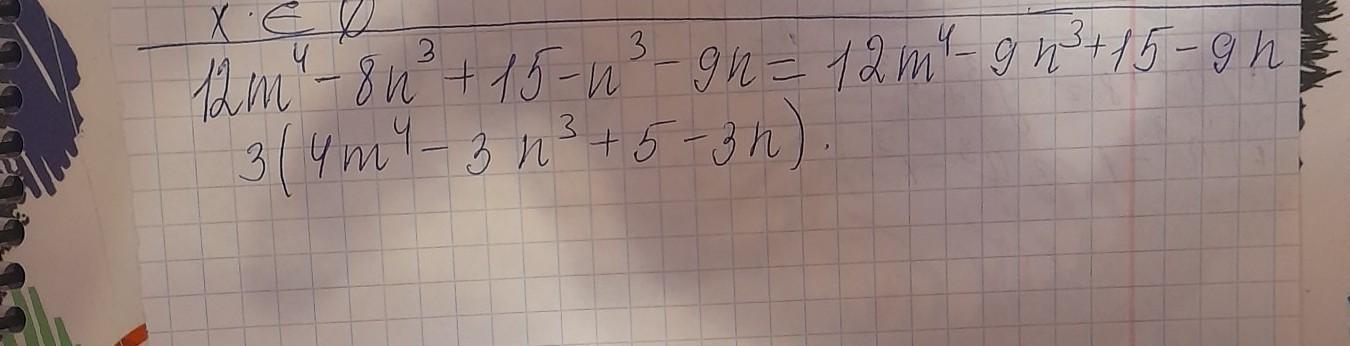 x ∈ ∅
12m⁴ - 8n³ + 15 - n³ - 9n = 12m⁴ - 9n³ + 15 - 9n
3(4m⁴ - 3n³ + 5 - 3n).